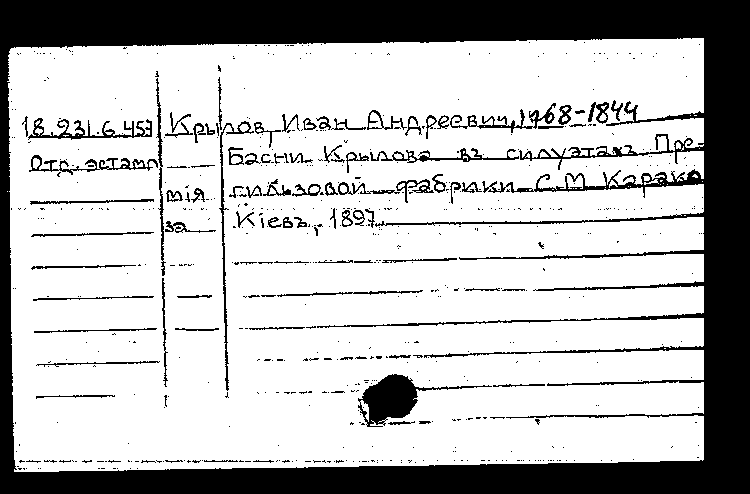 18.231.6.457 Крылов, Иван Андреевич, 1768-1844
Отд. эстамп Басни Крылова въ силуэтахъ Пре-
мія гильзовой фабрики С.М Карако
за Кіевъ, 1897.